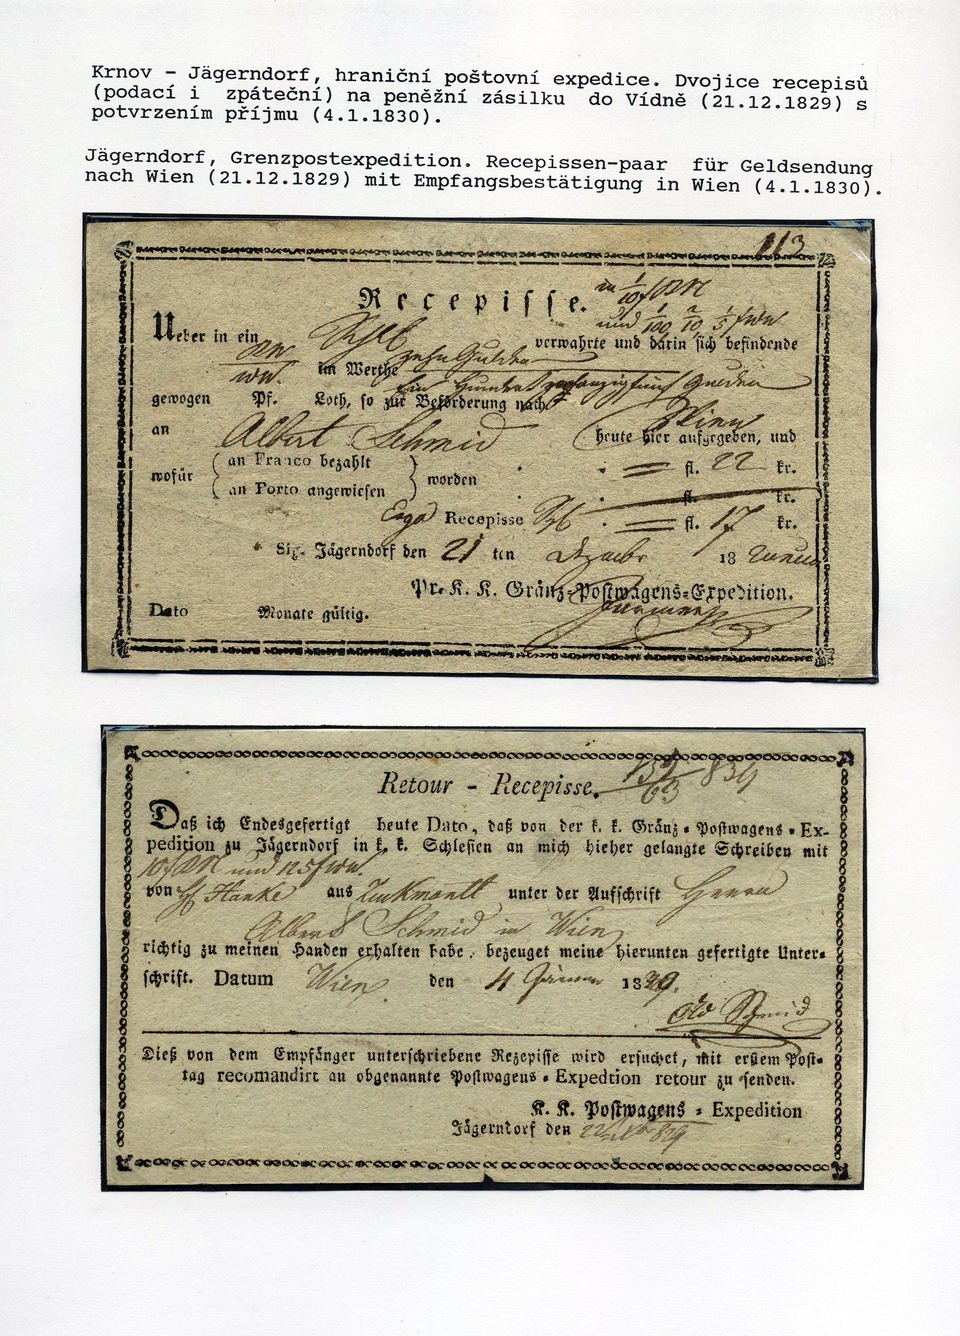 Krnov - Jägerndorf, hraniční poštovní expedice. Dvojice recepisů
(podací i zpáteční) na peněžní zásilku do Vídně (21.12.1829) s
potvrzením příjmu (4.1.1830).
Jägerndorf, Grenzpostexpedition. Recepissen-paar für Geldsendung
nach Wien (21.12.1829) mit Empfangsbestätigung in Wien (4.1.1830).
113
Recepisse.
Ueber in ein verwahrte und darin sich befindende
im Werthe zehn Gulden
Ein Hundert zwanzig fünf Gulden
gewogen Pf. Loth, so zur Beförderung nach Wien
an Albert Schmid heute hier aufgegeben, und
wofür an Franco bezahlt worden fl. 22 kr.
an Porto angewiesen fl. kr.
Recepisse fl. 17 kr.
Sig. Jägerndorf den 21 ten 18
Pr. K. K. Gränz-Postwagens-Expedition.
Dato Monate gültig.
Retour - Recepisse.
Daß ich Endesgefertigt heute Dato, daß von der k. k. Gränz-Postwagens-Ex-
pedition zu Jägerndorf in k. k. Schlesien an mich hieher gelangte Schreiben mit
von Hanke aus Zuckmantl unter der Aufschrift Herrn
Albert Schmid in Wien
richtig zu meinen Handen erhalten habe, bezeuget meine hierunten gefertigte Unter-
schrift. Datum Wien den 4 18
Schmid
Dieß von dem Empfänger unterschriebene Rezepisse wird ersuchet, mit erstem Post-
tag recomandirt an obgenannte Postwagens-Expedtion retour zu senden.
K. K. Postwagens-Expedition
Jägerndorf den 829